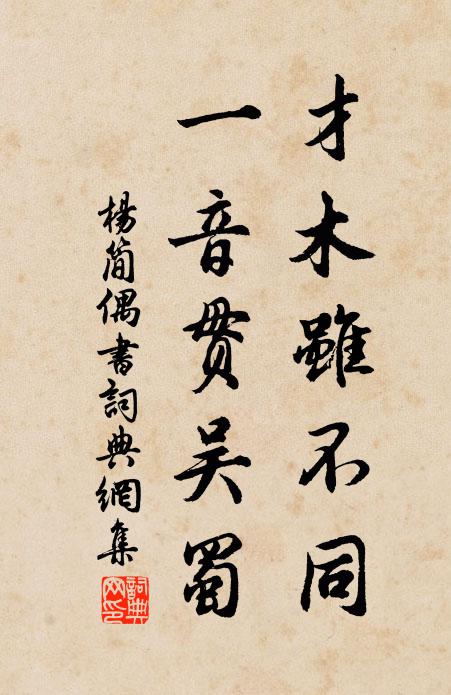 才木雖不同
一音貫吳蜀
楊簡偶書詞典網集
詞典
网印